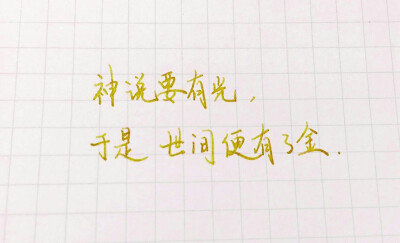 神说要有光，
于是 世间便有了金.